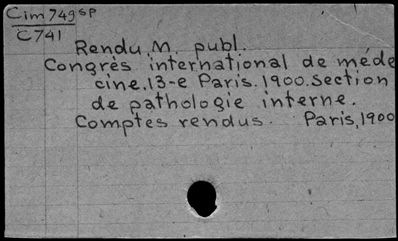 Cim 749 sp
C741
Rendu, M. publ.
Congrès international de méde
cine. 13-e Paris. 1900. Section
de pathologie interne.
Comptes rendus. Paris, 1900